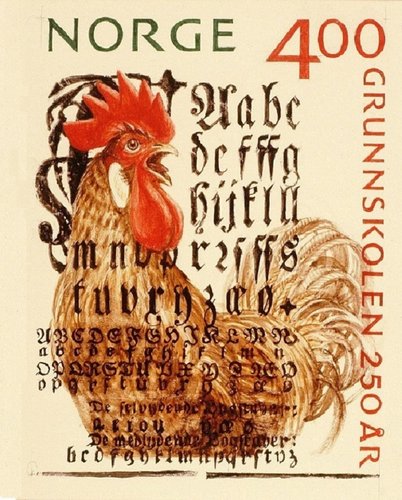 NORGE 4.00
GRUNNSKOLEN 250 ÅR
A a b c
d e f ff g
h i j k l ll
m n o p r 2 ſ ſ s
t u v x y z æ ø
A B C D E F G H I J K L M N
a b c d e f g h i j k l m n
O P Q R S T U V X Y Z Æ Ø
De selvlydende Bogstaver:
a e i o u y æ ø
De medlydende Bogstaver: